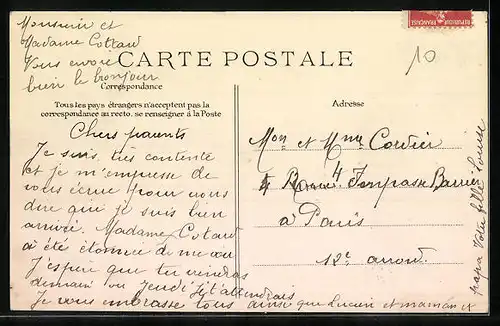 Monsieur et
Madame Cotzard
Vous envoie
bien le bonjour
CARTE POSTALE
Correspondance
Tous les pays étrangers n'acceptent pas la
correspondance au recto, se renseigner à la Poste
Chers parents
Je suis très contente
et je m'empresse de
vous écrire pour vous
dire que je suis bien
arrivée. Madame Cotzard
a été étonnée de me voir
J'espère que tu viendras
demain ou jeudi je t'attendrais
Je vous embrasse tous ainsi que Lucien et maman et
papa Votre fille Louise
Adresse
Mon et Mme Cordier
4 Impasse Barrier
a Paris
12e arrond.
10
REPUBLIQUE FRANÇAISE